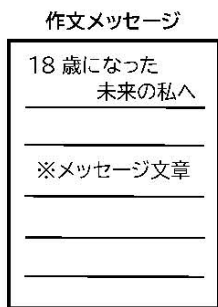 作文メッセージ
18歳になった
未来の私へ
※メッセージ文章